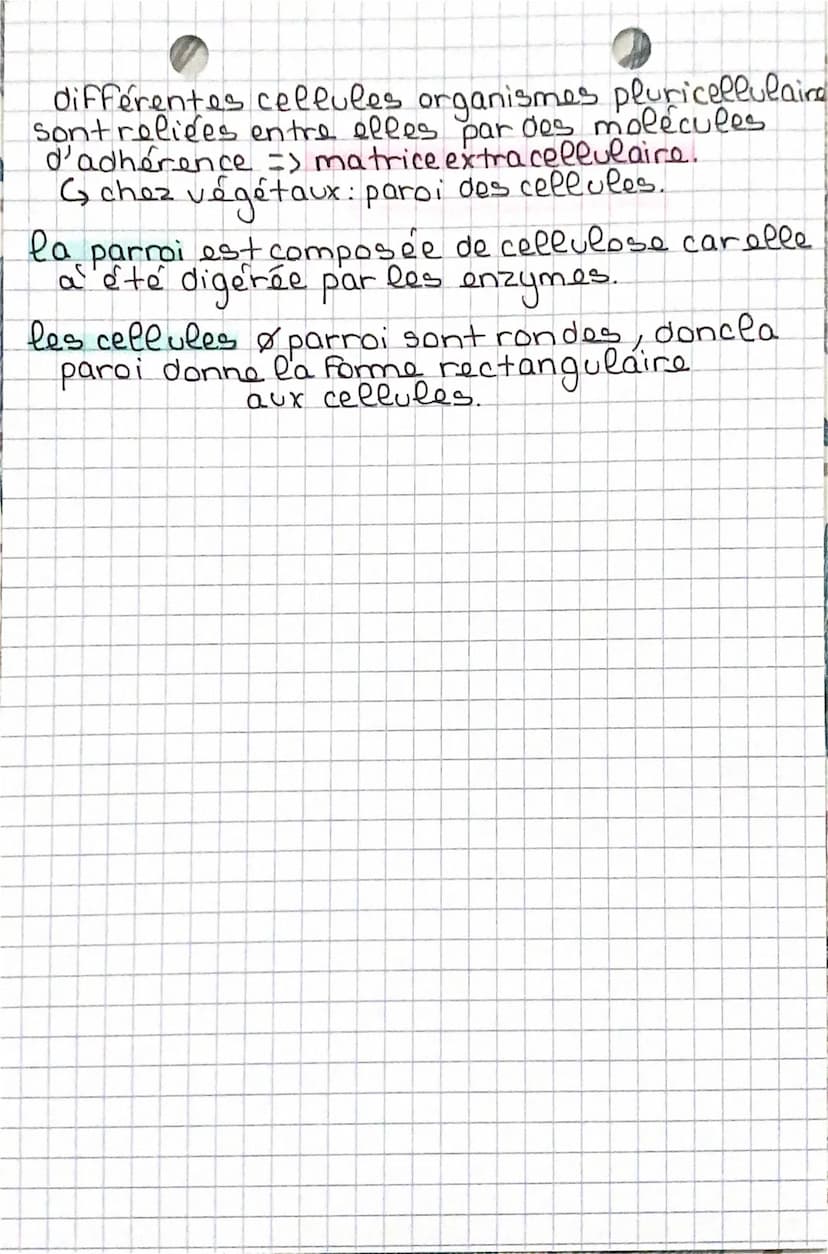 différentes cellules organismes pluricellulaire
sont reliées entre elles par des molécules
d'adhérence => matrice extracellulaire.
↳ chez végétaux : paroi des cellules.
la parroi est composée de cellulose car elle
a été digérée par les enzymes.
les cellules ø parroi sont rondes, donc la
paroi donne la forme rectangulaire
aux cellules.